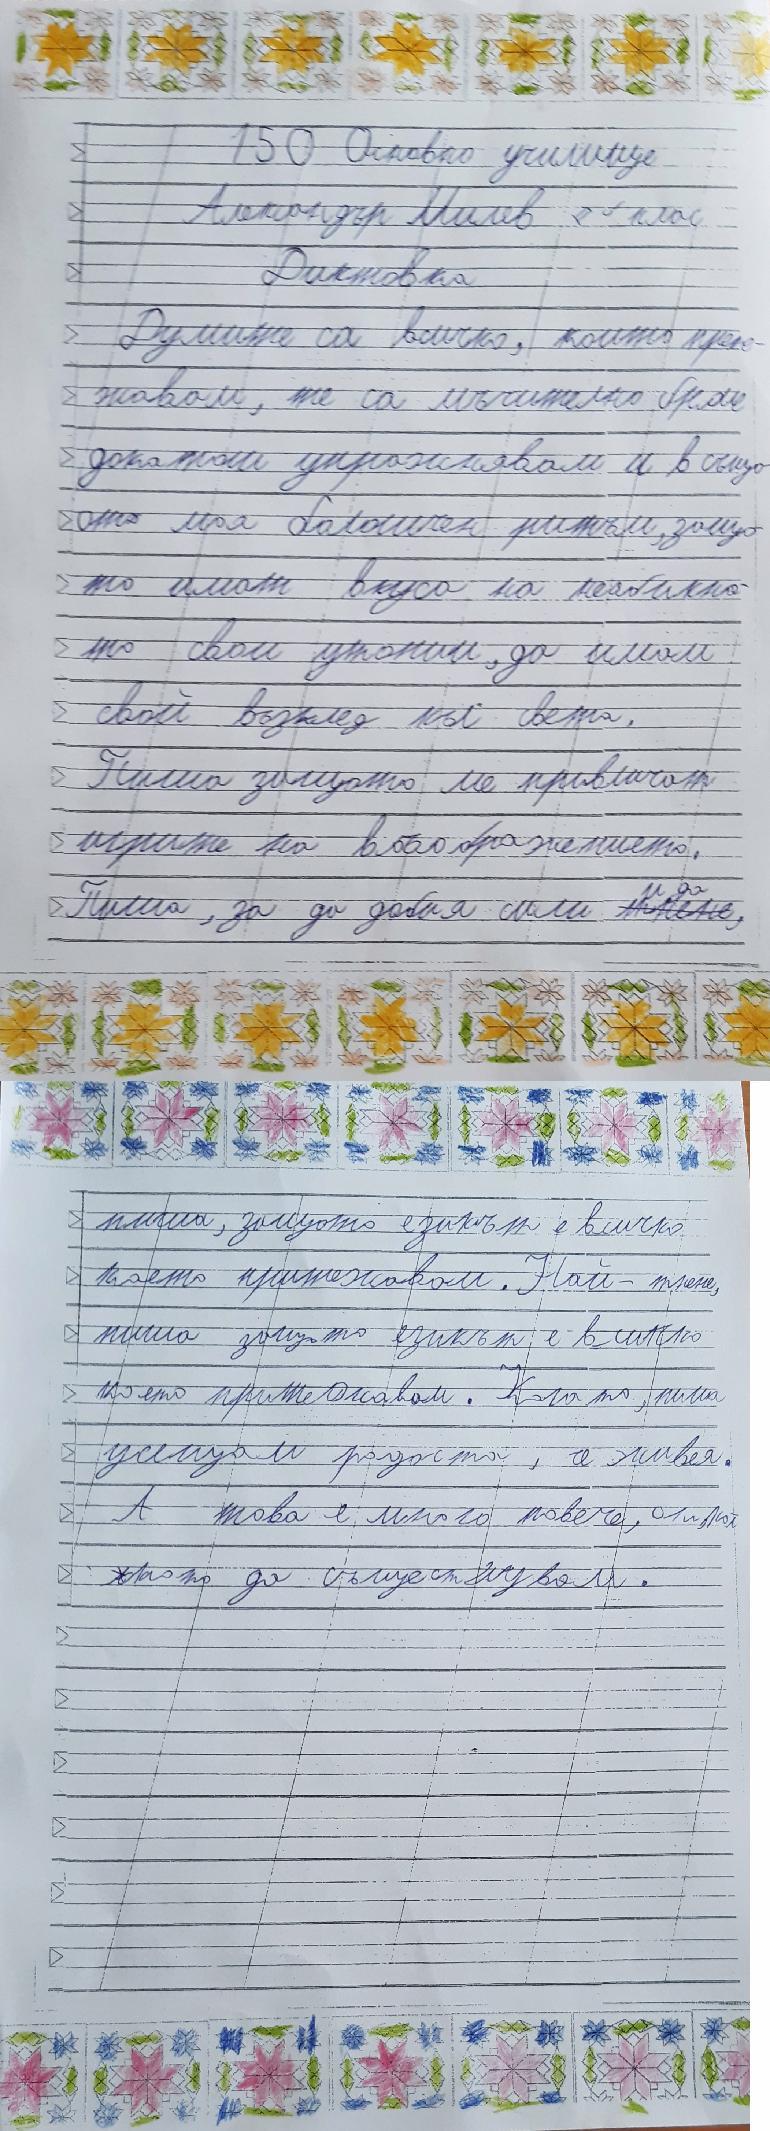 150 Основно училище
Александър Милев клас
Диктовка
Думите са всичко, които
жавам, те са мъчително
упражнявам и в също
ото моя ритъм, защо
то имат вкуса на
то свои утопии, да имам
свой възглед към света.
Пиша защото ме привличат
игрите на въображението.
Пиша, за да добия сили и да
пиша, защото езикът е всичко
което притежавам. Най-
пиша защото езикът е всичко
което притежавам. Когато, пиша
усещам радостта, че живея.
А това е много повече, от
да съществувам.